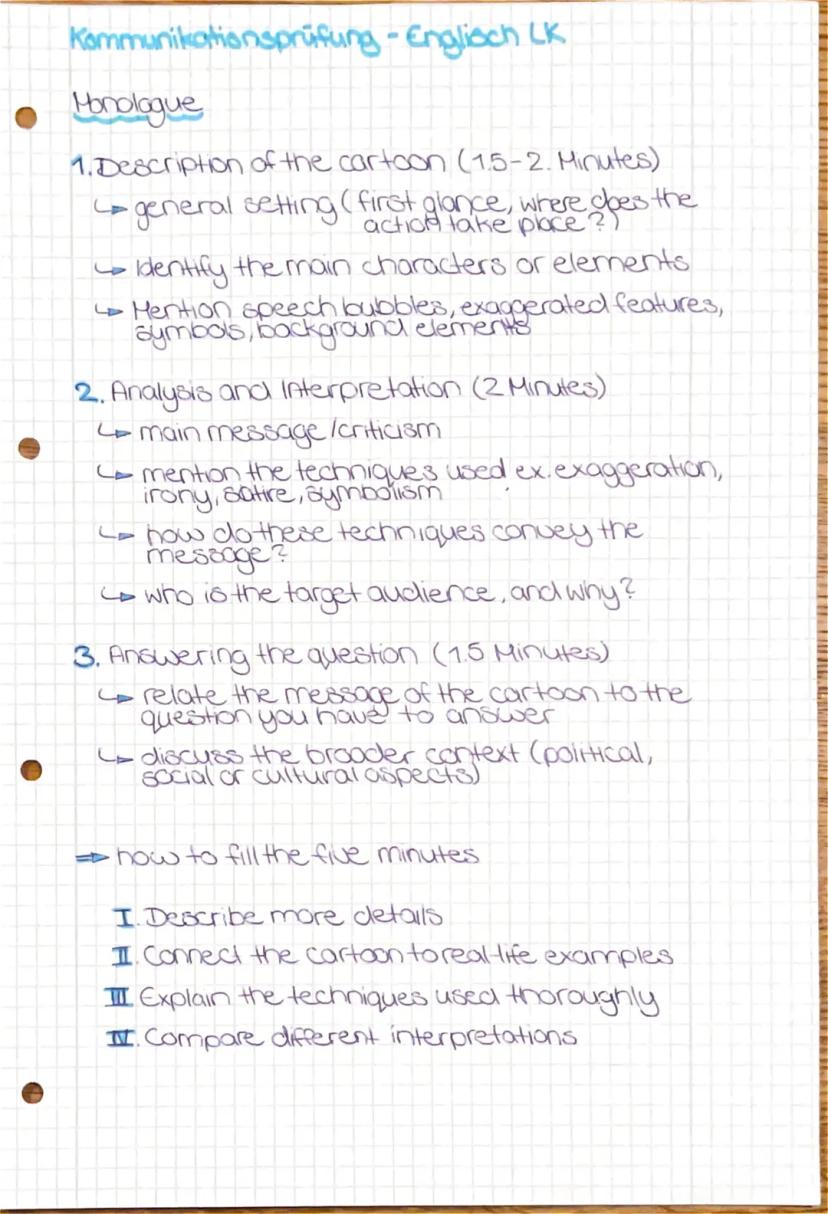 Kommunikationsprüfung - Englisch LK
Monologue
1. Description of the cartoon (1.5-2. Minutes)
↳ general setting (first glance, where does the
action take place?)
↳ Identify the main characters or elements
↳ Mention speech bubbles, exaggerated features,
symbols, background elements
2. Analysis and Interpretation (2 Minutes)
↳ main message/criticism
↳ mention the techniques used ex. exaggeration,
irony, satire, symbolism
↳ how do these techniques convey the
message?
↳ who is the target audience, and why?
3. Answering the question (1.5 Minutes)
↳ relate the message of the cartoon to the
question you have to answer
↳ discuss the broader context (political,
social or cultural aspects)
⇒ how to fill the five minutes
I. Describe more details
II. Connect the cartoon to real-life examples
III. Explain the techniques used thoroughly
IV. Compare different interpretations